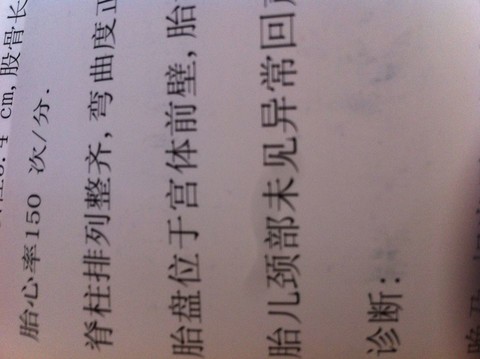 cm,股骨长
胎心率150 次/分.
脊柱排列整齐,弯曲度正
胎盘位于宫体前壁,胎
胎儿颈部未见异常回声
诊断: